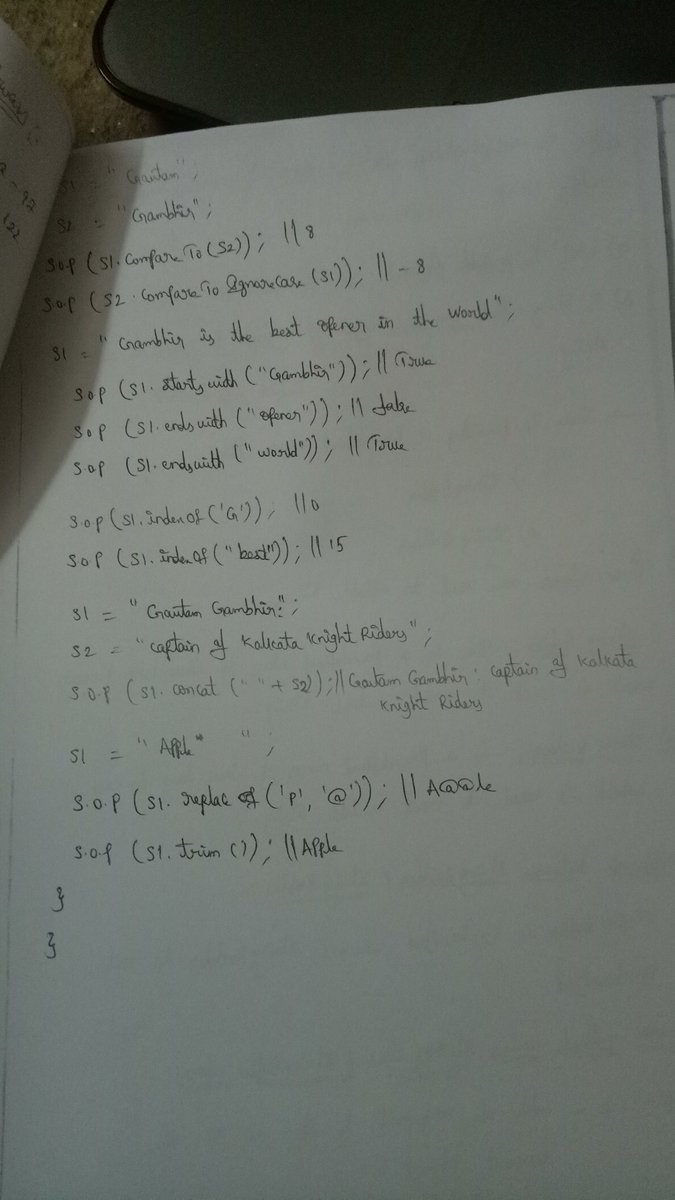 S1 = "Gautam";
S2 = "Gambhir";
S.o.p (S1.CompareTo(S2)); // 8
S.o.p (S2.CompareTo IgnoreCase (S1)); // -8
S1 = "Gambhir is the best opener in the world";
S.o.p (S1.startswith ("Gambhir")); // True
S.o.p (S1.endswith ("opener")); // false
S.o.p (S1.endswith ("world")); // True
S.o.p (S1.indexOf ('G')); // 0
S.o.p (S1.indexOf ("best")); // 15
S1 = "Gautam Gambhir:";
S2 = "captain of Kolkata Knight Riders";
S.o.p (S1.concat (" " + S2)); // Gautam Gambhir: captain of Kolkata
Knight Riders
S1 = " Apple ";
S.o.p (S1.replac ('p', '@')); // A@@le
S.o.p (S1.trim ()); // Apple
}
}